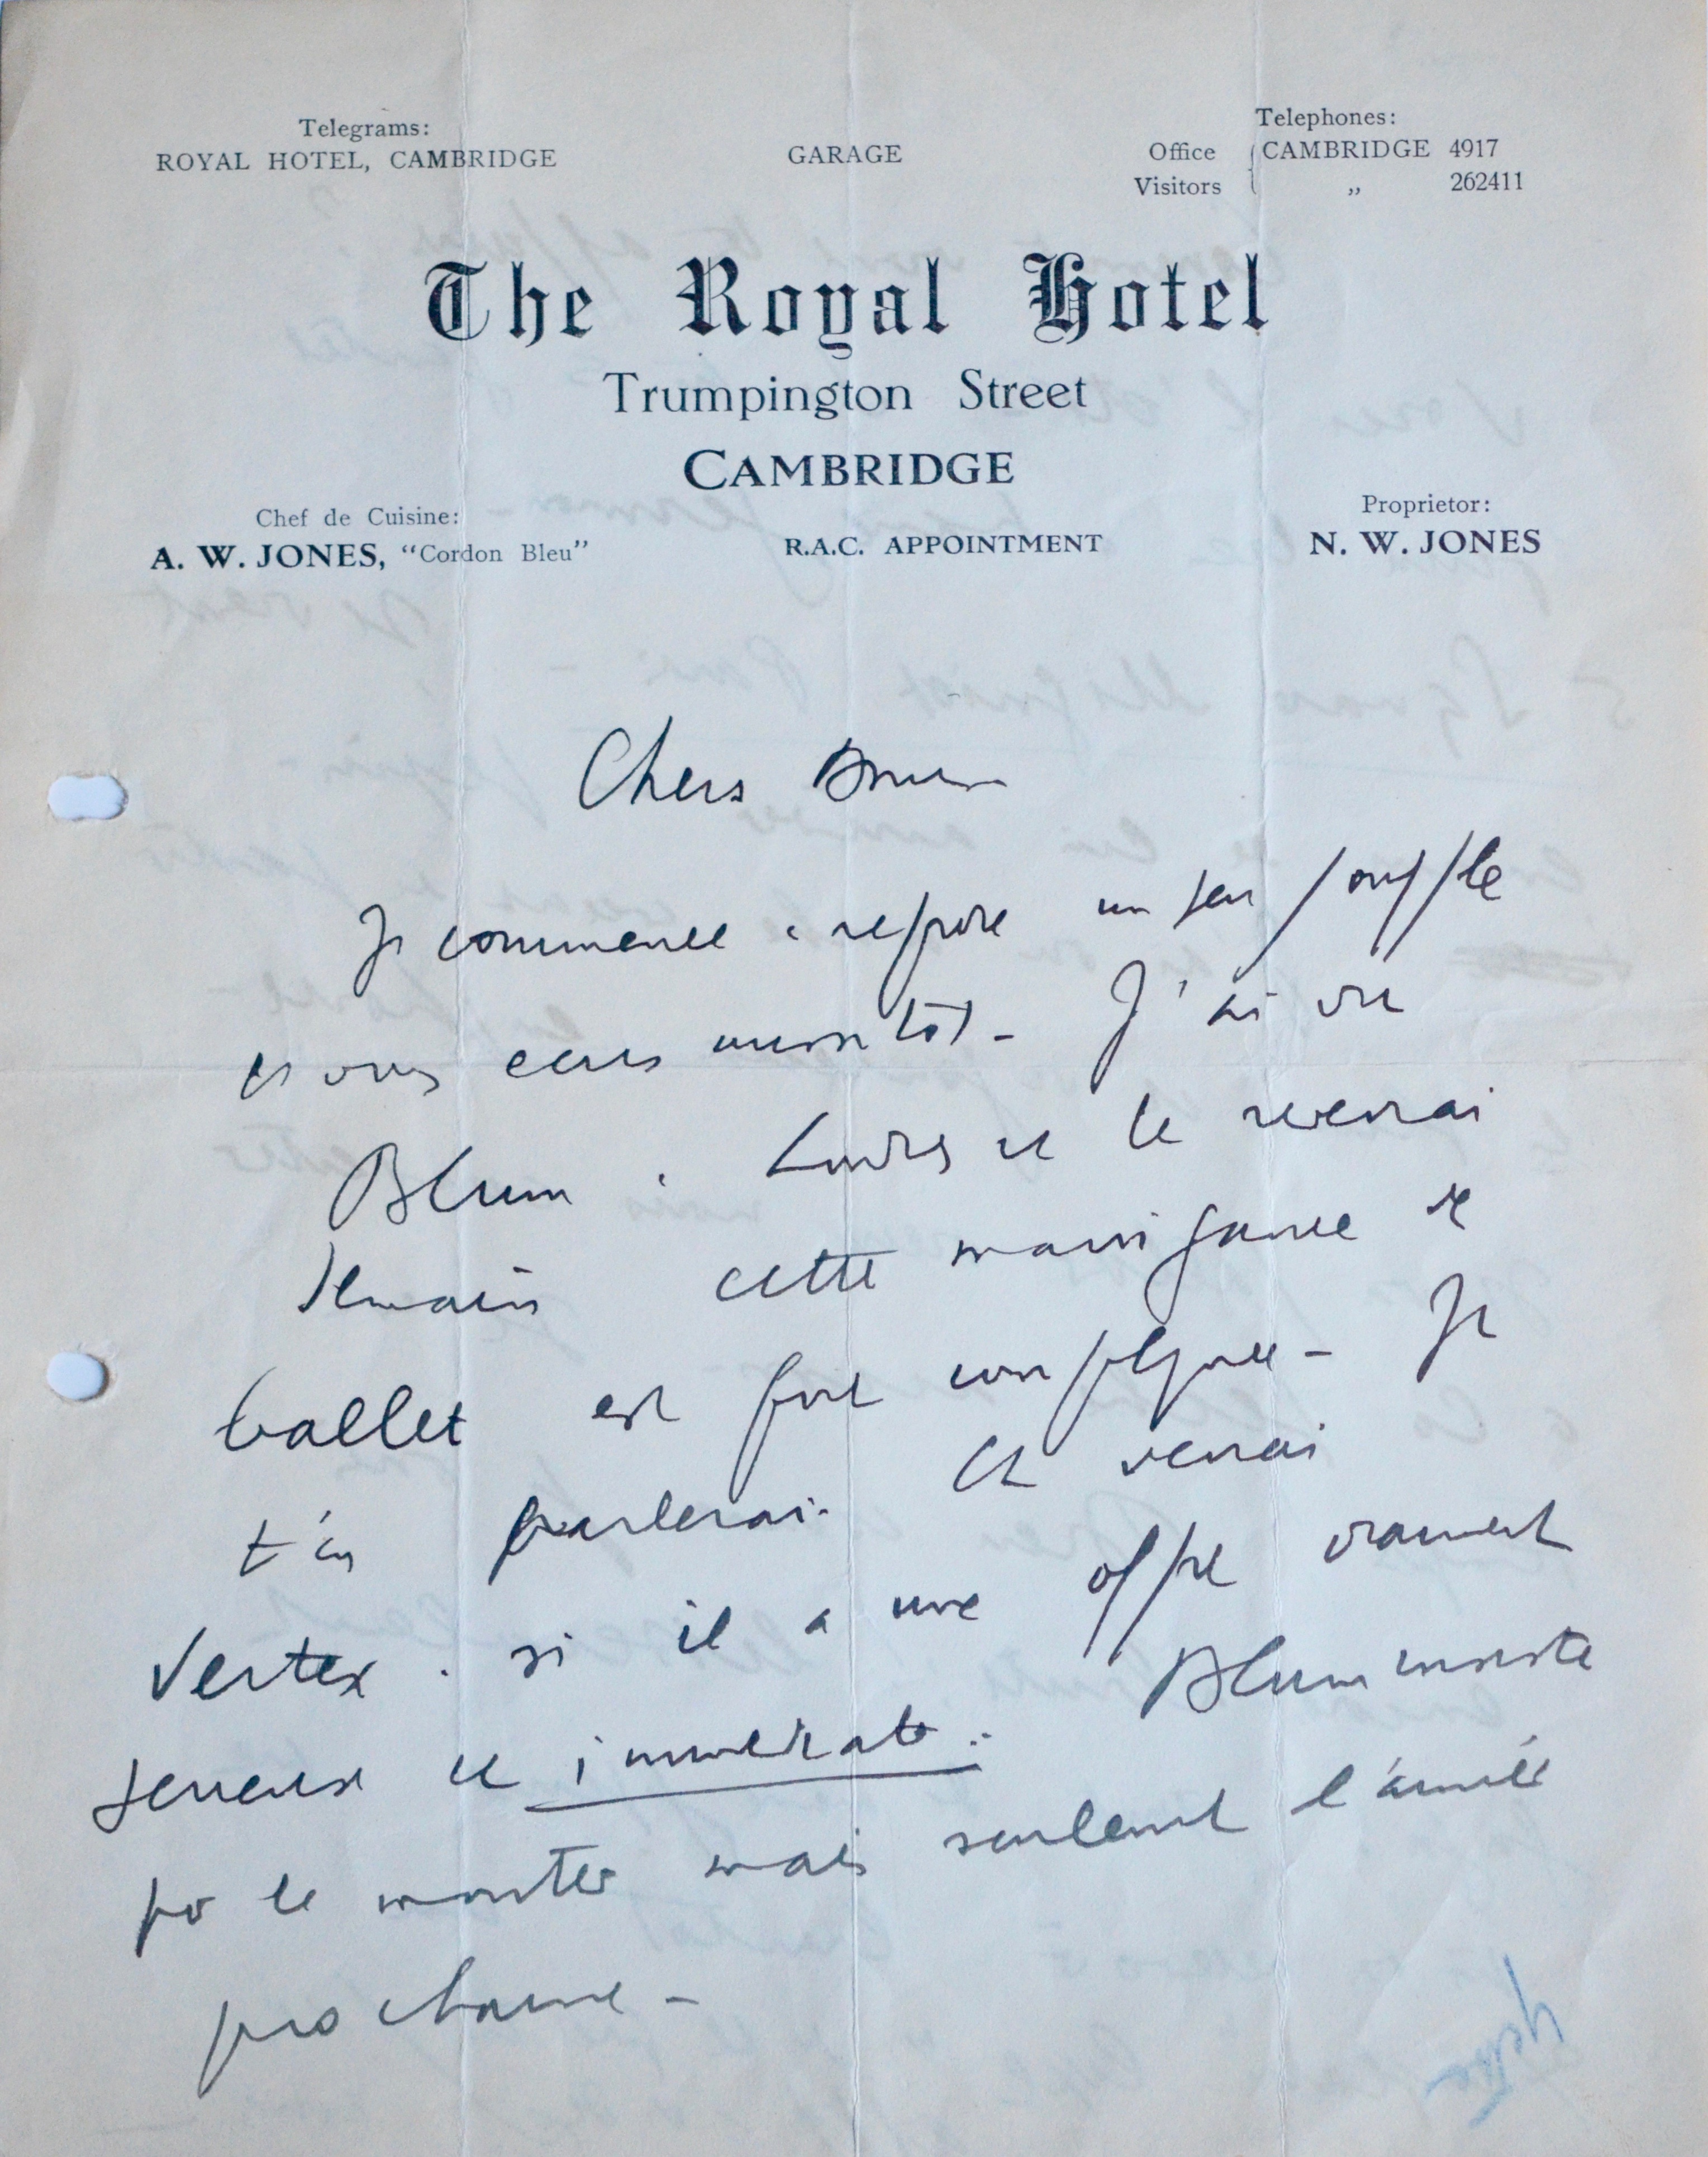 Telegrams:
ROYAL HOTEL, CAMBRIDGE
GARAGE
Telephones:
Office CAMBRIDGE 4917
Visitors „ 262411
The Royal Hotel
Trumpington Street
CAMBRIDGE
Chef de Cuisine:
A. W. JONES, "Cordon Bleu"
R.A.C. APPOINTMENT
Proprietor:
N. W. JONES
Chers
Je commence à un peu souffle
et vous aussitôt - J'ai vu
Blum à Londres et le reverrai
demain cette manigance de
ballet est fort compliquée - Je
t'en parlerai. Et verrai
Vertex. si il a une offre vraiment
sérieuse et immédiate. Blum insiste
pr le monter mais seulement l'année
prochaine -